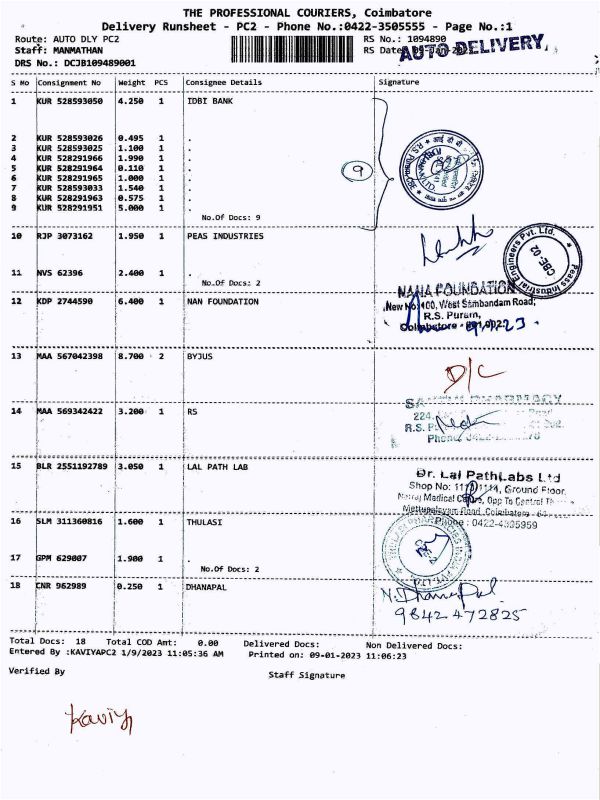 THE PROFESSIONAL COURIERS, Coimbatore
Delivery Runsheet - PC2 - Phone No.:0422-3505555 - Page No.:1
Route: AUTO DLY PC2 RS No.: 1094890
Staff: MANMATHAN RS Date:
AUTO DELIVERY,
DRS No.: DCJB109489001
S No Consignment No Weight PCS Consignee Details Signature
1 KUR 528593050 4.250 1 IDBI BANK
2 KUR 528593026 0.495 1 .
3 KUR 528593025 1.100 1 .
4 KUR 528291966 1.990 1 .
5 KUR 528291964 0.110 1 .
6 KUR 528291965 1.000 1 .
7 KUR 528593033 1.540 1 .
8 KUR 528291963 0.575 1 .
9 KUR 528291951 5.000 1 .
9
No.Of Docs: 9
10 RJP 3073162 1.950 1 PEAS INDUSTRIES
Peass Industrial Engineers Pvt. Ltd.
CBE-02
11 NVS 62396 2.400 1 .
No.Of Docs: 2
12 KDP 2744590 6.400 1 NAN FOUNDATION
NANA FOUNDATION
New No:100, West Sambandam Road,
R.S. Puram,
Coimbatore
13 MAA 567042398 8.700 2 BYJUS
D/C
14 MAA 569342422 3.200 1 RS
PHARMACY
224,
Road
R.S.
Phone
15 BLR 2551192789 3.050 1 LAL PATH LAB
Dr. Lal PathLabs Ltd
Shop No: Ground Floor,
Medical Centre, Opp To Central
Mettupalayam Road, Coimbatore
Phone : 0422-4395959
16 SLM 311360816 1.600 1 THULASI
17 GPM 629007 1.900 1 .
No.Of Docs: 2
18 CNR 962989 0.250 1 DHANAPAL
N. Dhanapal
9842 472825
Total Docs: 18 Total COD Amt: 0.00 Delivered Docs: Non Delivered Docs:
Entered By :KAVIYAPC2 1/9/2023 11:05:36 AM Printed on: 09-01-2023 11:06:23
Verified By Staff Signature
Kaviya